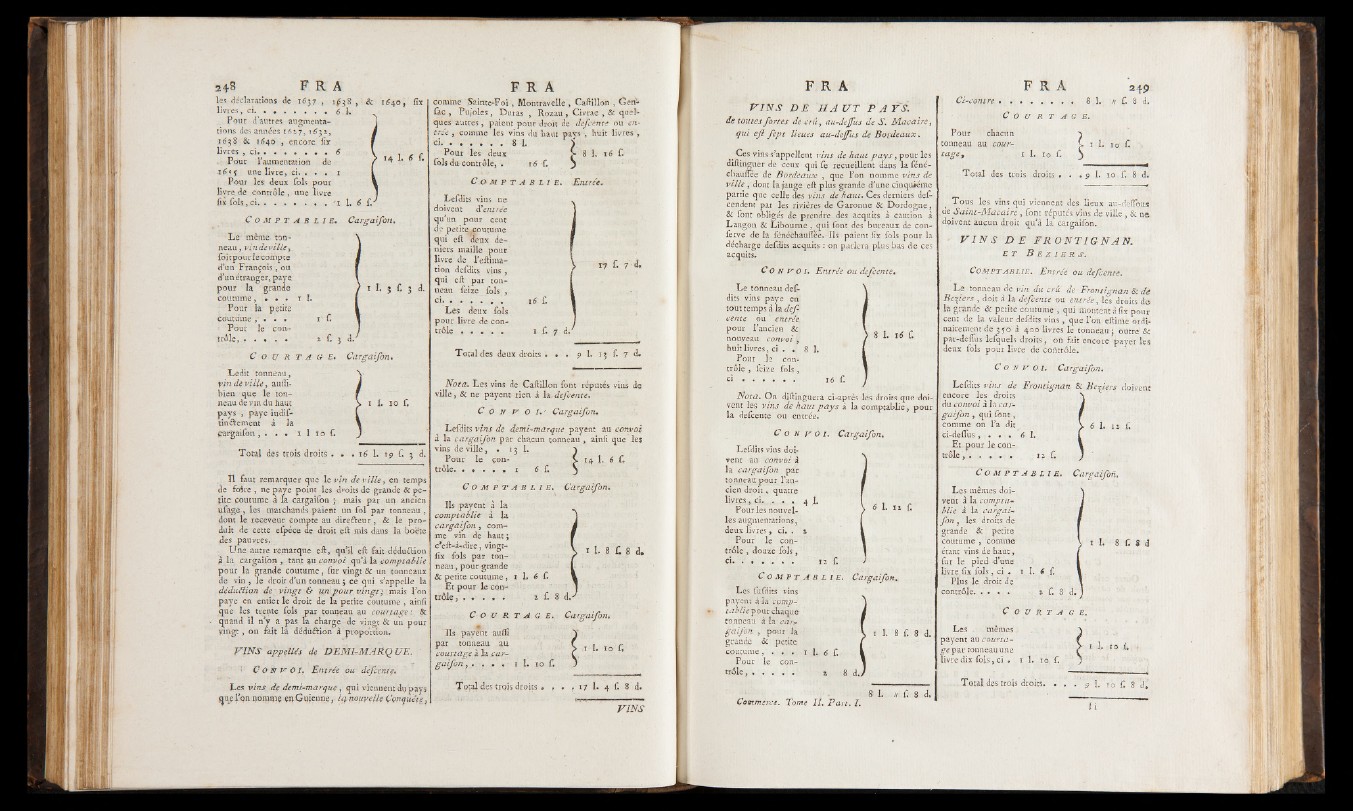 248 F R A
les déclarations de 1637, 1638, & 1640, six
livres, ci. . . . . . . . 6 l.
Pour d'autres augmenta-
tions des années 1627, 1632,
1638 & 1640, encore six
livres, ci. . . . . . . . 6
Pour l'augmentation de
une livre, ci. . . . 1
14 l. 6 s.
Pour les deux sols pour
livre de contrôle, une livre
six sols, ci. . . . . . . . 1 l. 6 s.
COMPTABLIE. Cargaison.
Le même ton-
neau, vin de ville,
soit pour le compte
d'un François, ou
d'un étranger, paye
pour la grande
coutume, . . . 1 l.
1 l. 3 s. 3 d.
Pour la petite
coutume, . . . 1 s.
Pour le con-
trôle, . . . . . 2 s. 3 d.
COURTAGE. Cargaison.
Ledit tonneau,
vin de ville, aussi-
bien que le ton-
neau de vin du haut
pays, paye indis-
tinctement à la
cargaison, . . . 1 l. 10 s.
1 l. 10 s.
Total des trois droits . . . 16 l. 19 s. 3 d.
Il faut remarquer que le vin de ville, en temps
de foire, ne paye point les droits de grande & pe-
tite coutume à sa cargaison; mais par un ancien
usage, les marchands paient un sol par tonneau,
dont le receveur compte au directeur, & le pro-
duit de cette espèce de droit est mis dans la boëte
des pauvres.
Une autre remarque est, qu'il est fait déduction
à la cargaison, tant au convoi qu'à la comptablie
pour la grande coutume, sur vingt & un tonneaux
de vin, le droit d'un tonneau; ce qui s'appelle la
déduction de vingt & un pour vingt; mais l'on
paye en entier le droit de la petite coutume, ainsi
que les trente sols par tonneau au courtage: &
quand il n'y a pas la charge de vingt & un pour
vingt, on fait la déduction à proportion.
VINS appellés de DEMI-MARQUE.
CONVOI. Entrée ou descente.
Les vins de demi-marque, qui viennent du pays
que l'on nomme en Guienne, la nouvelle Conquête,
F R A
comme Sainte-Foi, Montravelle, Castillon, Gen-
sac, Pujoles, Duras, Rozau, Civrac, & quel-
ques autres, paient pour droit de descente ou en-
trée, comme les vins du haut pays, huit livres,
ci. . . . . . . 8 l.
Pour les deux
sols du contrôle, . 16 s.
8 l. 16 s.
COMPTABLIE. Entrée.
Lesdits vins ne
doivent d'entrée
qu'un pour cent
de petite coutume
qui est deux de-
niers maille pour
livre de l'estima-
tion desdits vins,
qui est par ton-
neau seize sols,
ci. . . . . . . 16 s.
17 s. 7 d.
Les deux sols
pour livre de con-
trôle . . . . . 1 s. 7 d.
Total des deux droits . . . 9 l. 13 s. 7 d.
Nota. Les vins de Castillon sont réputés vins de
ville, & ne payent rien à la descente.
CONVOI. Cargaison.
Lesdits vins de demi-marque payent au convoi
à la cargaison par chacun tonneau, ainsi que les
vins de ville, . 13 l.
Pour le con-
trôle. . . . . . 1 6 s.
14 l. 6 s.
COMPTABLIE. Cargaison.
Ils payent à la
comptablie à la
cargaison, com-
me vin de haut;
c'est-à-dire, vingt-
six sols par ton-
neau, pour grande
& petite coutume, 1 l. 6 s.
1 l. 8 s. 8 d.
Et pour le con-
trôle, . . . . . 2 s. 8 d.
COURTAGE. Cargaison.
Ils payent aussi
par tonneau au
courtage à la car-
gaison, . . . . 1 l. 10 s.
1 l. 10 s.
Total des trois droits . . . . 17 l. 4 s. 8 d.
VINS
F R A
VINS DE HAUT PAYS.
de toutes sortes de crû, au-dessus de S. Macaire,
qui est sept lieues au-dessus de Bordeaux.
Ces vins s'appellent vins de haut pays, pour les
distinguer de ceux qui se recueillent dans la séné-
chaussée de Bordeaux, que l'on nomme vins de
ville, dont la jauge est plus grande d'une cinquième
partie que celle des vins de haut. Ces derniers des-
cendent par les rivières de Garonne & Dordogne,
& sont obligés de prendre des acquits à caution à
Langon & Libourne, qui sont des bureaux de con-
serve de la sénéchaussée. Ils paient six sols pour la
décharge desdits acquits: on parlera plus bas de ces
acquits.
CONVOI. Entrée ou descente.
Le tonneau des-
dits vins paye en
tout temps à la des-
cente ou entrée
pour l'ancien &
nouveau convoi,
huit livres, ci . . 8 l.
8 l. 16 s.
Pour le con-
trôle, seize sols,
ci . . . . . . 16 s.
Nota. On distinguera ci-après les droits que doi-
vent les vins de haut pays à la comptablie, pour
la descente ou entrée.
CONVOI. Cargaison.
Lesdits vins doi-
vent au convoi à
la cargaison par
tonneau pour l'an-
cien droit, quatre
livres, ci. . . . 4 l.
Pour les nouvel-
les augmentations,
deux livres, ci. . 2
6 l. 12 s.
Pour le con-
trôle, douze sols,
ci. . . . . . . 12 s.
COMPTABLIE. Cargaison.
Les susdits vins
payent à la comp-
tablie pour chaque
tonneau à la car-
gaison, pour la
grande & petite
coutume, . . . 1 l. 6 s.
1 l. 8 s. 8 d.
Pour le con-
trôle, . . . . . 2 8 d.
8 l. " s. 8 d.
Commerce. Tome II. Part. I.
F R A 249
Ci-contre . . . . . . . . 8 l. " s. 8 d.
COURTAGE.
Pour chacun
tonneau au cour-
tage, 1 l. 10 s.
1 l. 10 s.
Total des trois droits . . . 9 l. 10 s. 8 d.
Tous les vins qui viennent des lieux au-dessous
de Saint-Macaire, sont réputés vins de ville, & ne
doivent aucun droit qu'à la cargaison.
VINS DE FRONTIGNAN.
ET BEZIERS.
COMPTABLIE. Entrée ou descente.
Le tonneau de vin du crû de Frontignan & de
Beziers, doit à la descente ou entrée, les droits de
la grande & petite coutume, qui montent à six pour
cent de la valeur desdits vins, que l'on estime ordi-
nairement de 350 à 400 livres le tonneau; outre &
par-dessus lesquels droits, on fait encore payer les
deux sols pour livre de contrôle.
CONVOI. Cargaison.
Lesdits vins de Frontignan & Beziers doivent
encore les droits
du convoi à la car-
gaison, qui sont,
comme on l'a dit
ci-dessus, . . . 6 l.
6 l. 12 s.
Et pour le con-
trôle, . . . . . 12 s.
COMPTABLIE. Cargaison.
Les mêmes doi-
vent à la compta-
blie à la cargai-
son, les droits de
grande & petite
coutume, comme
étant vins de haut,
sur le pied d'une
livre six sols, ci . 1 l. 6 s.
1 l. 8 s. 8 d
Plus le droit de
contrôle. . . . . 2 s. 8 d.
COURTAGE.
Les mêmes
payent au courta-
ge par tonneau une
livre dix sols, ci . 1 l. 10 s.
1 l. 10 s.
Total des trois droits. . . . 9 l. 10 s. 8 d.
I i